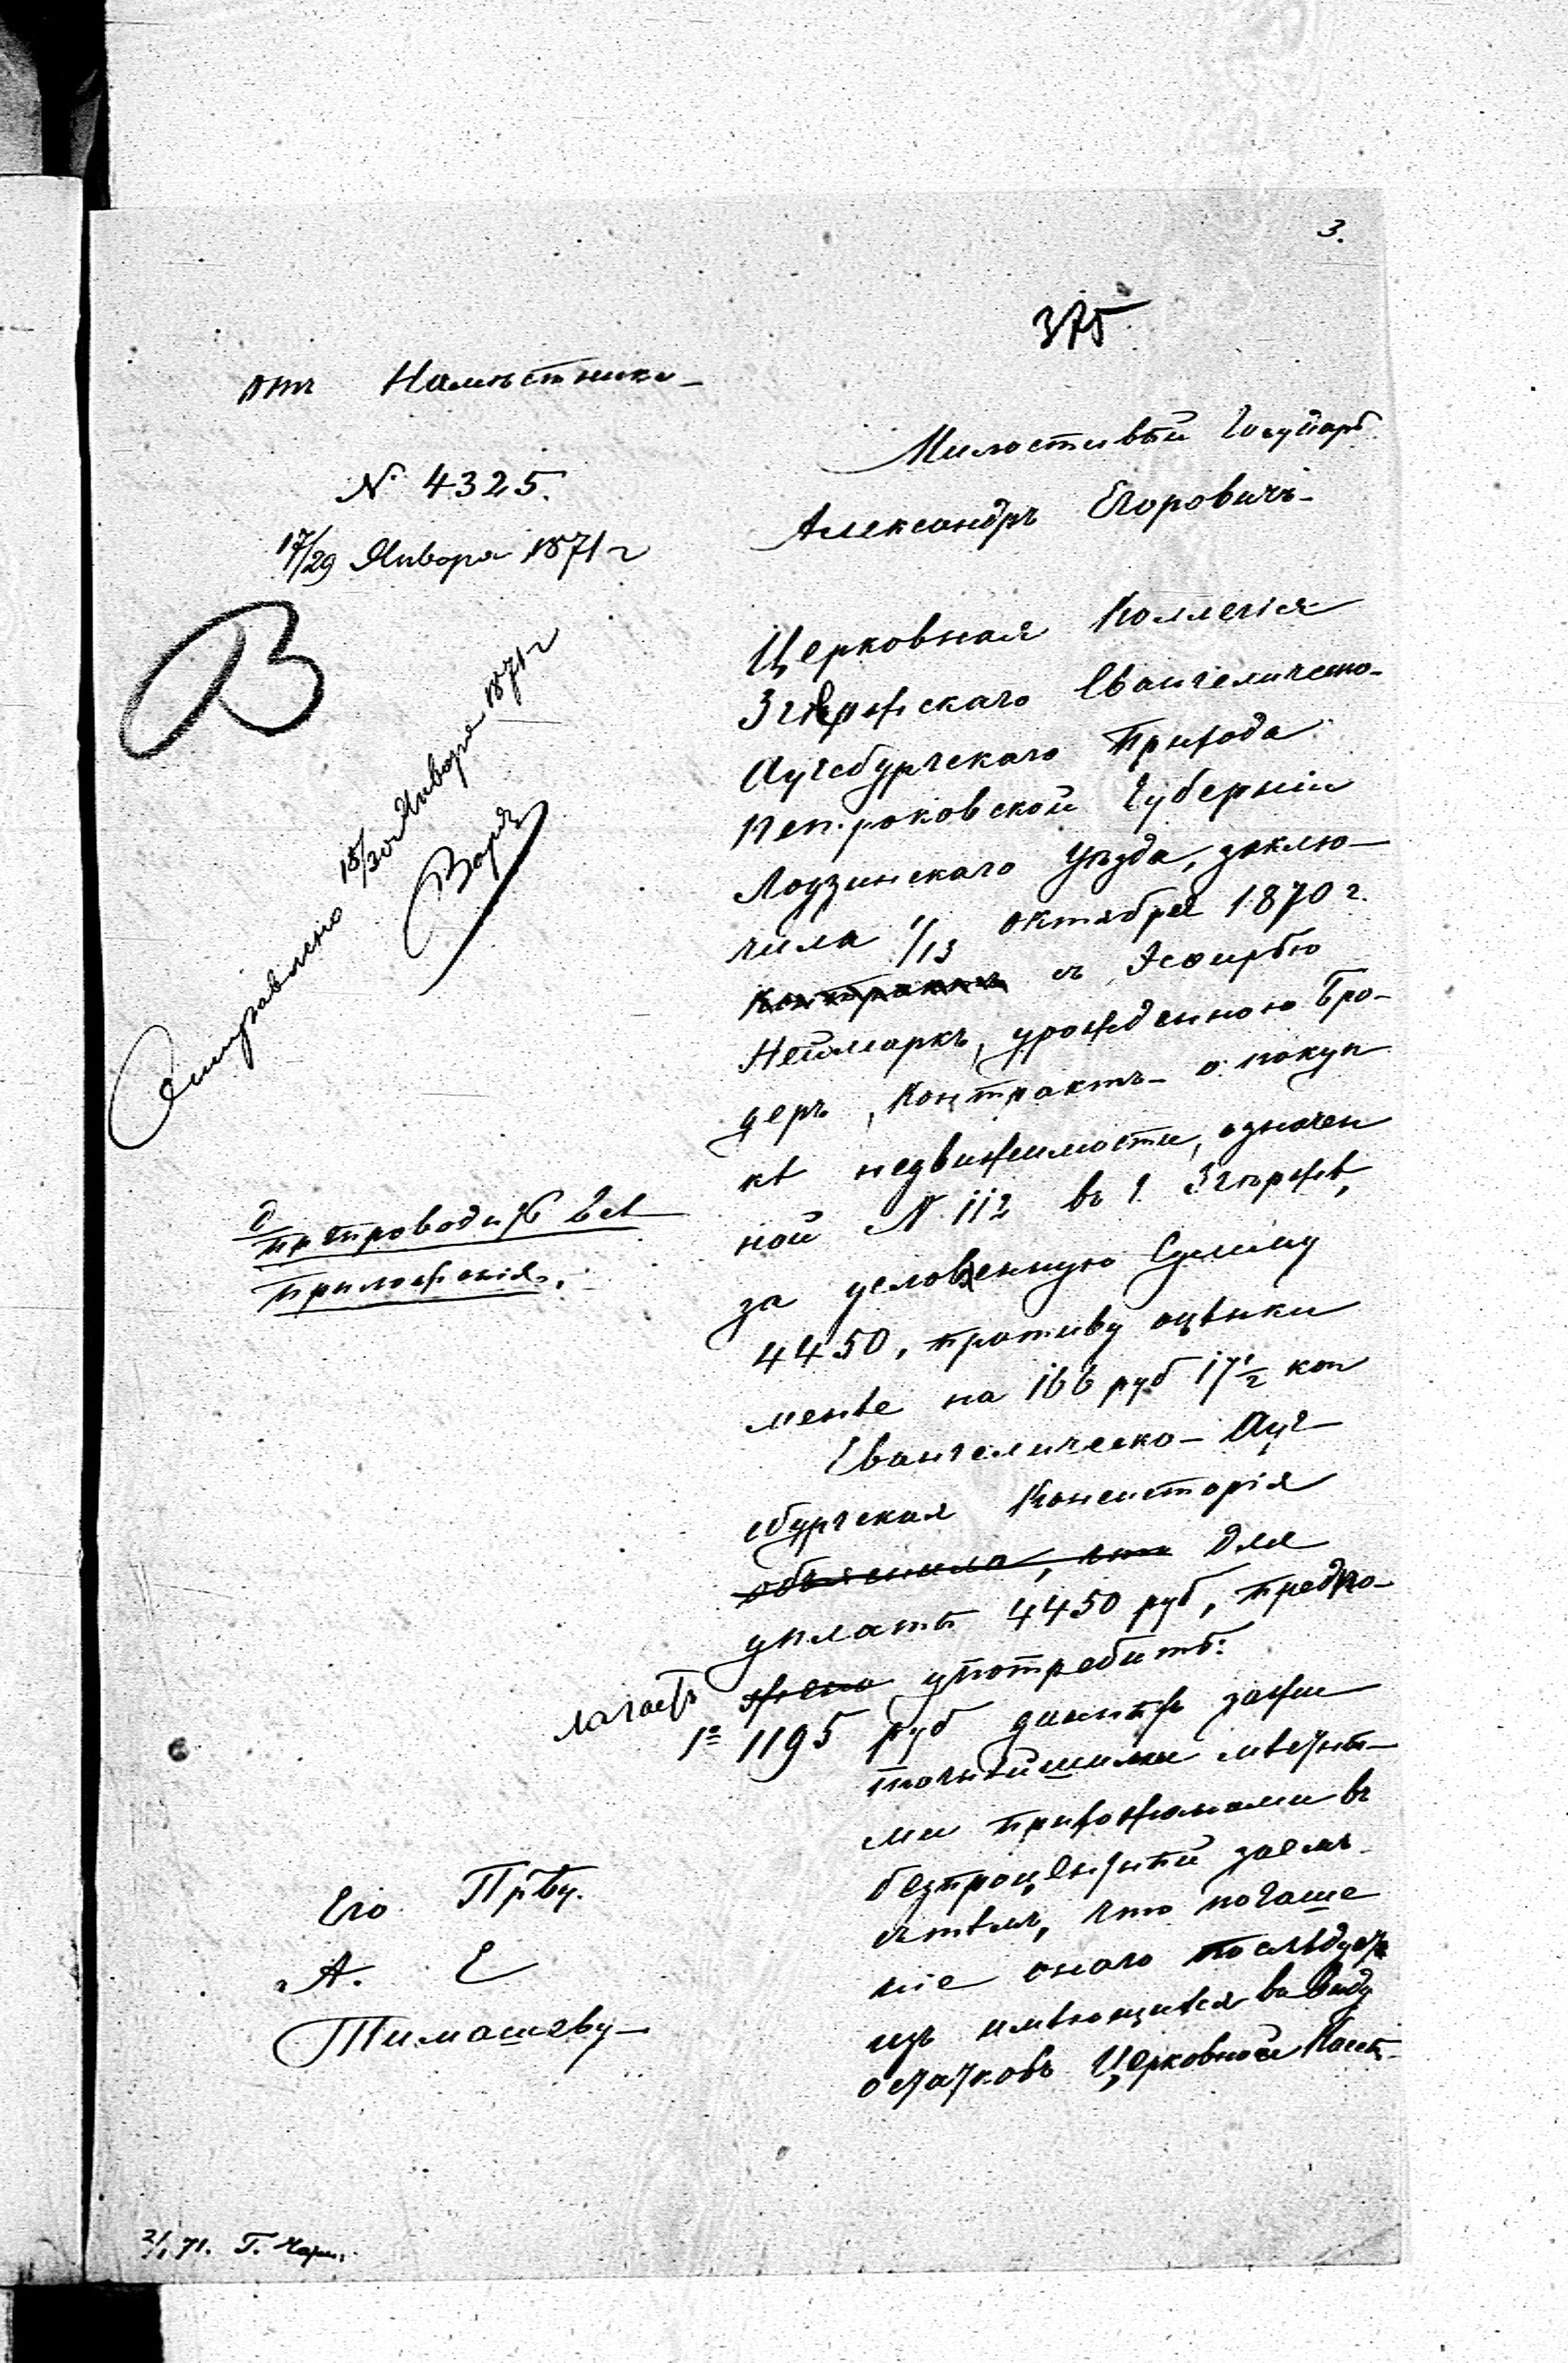 3.
375
отъ Намѣстника
№ 4325.
17/29 Января 1871 г
Отправлено 18/30 Января 1871 г
препроводить всѣ
приложенія.
Его Прву.
А. Е
Тимашеву
Милостивый Государь
Александръ Егоровичъ
Церковная Коллегія
Згержскаго Евангелическо-
Аугсбургскаго Прихода
Петроковской Губерніи
Лодзинскаго Уѣзда, заклю-
чила 1/13 октября 1870 г.
Контрактъ съ Эсѳирью
Неймаркъ, урожденною Бро-
деръ, Контрактъ о покуп
кѣ недвижимости, означен
ной № 112 въ г. Згержѣ,
за условленную Сумму
4450, противу оцѣнки
менѣе на 166 руб 17 1/2 коп
Евангелическо-Ауг-
сбургская Консисторія
объяснила, что для
уплаты 4450 руб, предпо-
лагаетъ жено употребить:
1º 1195 руб данныхъ зажи
точнѣйшими мѣстны-
ми прихожанами въ
безпроцентный заемъ
съ тѣмъ, что погаше
ніе онаго послѣдуетъ
изъ имѣющихся въ виду
остатковъ Церковной Кассы
2/1 71. Г.